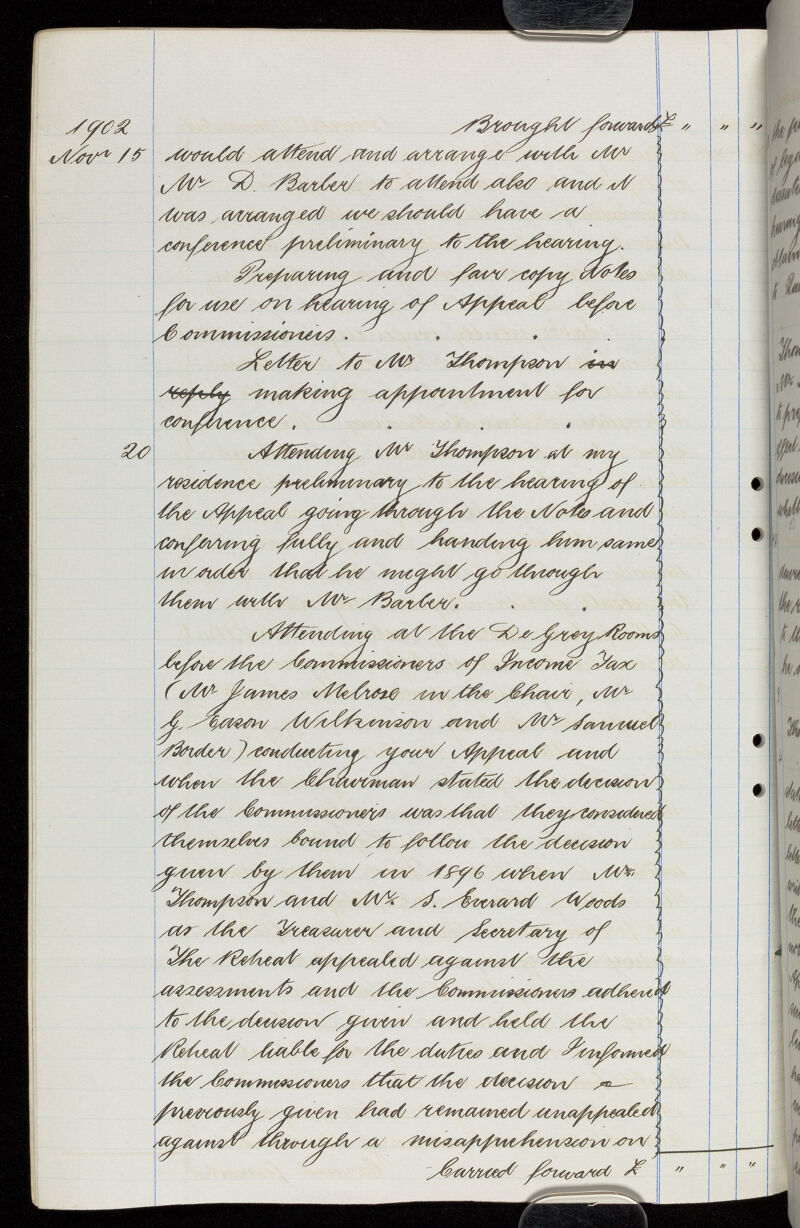 1902 Brought forward £ " " "
Novr 15 would attend and arrange with Mr
Mr D. Barber to attend also and it
was arranged we should have a
conference preliminary to the hearing.
Preparing and fair copy Notes
for use on hearing of Appeal before
Commissioners . . .
Letter to Mr Thompson in
reply making appointment for
conference. . . .
20 Attending Mr Thompson at my
residence preliminary to the hearing of
the Appeal going through the Notes and
conferring fully and handing him same
in order that he might go through
them with Mr Barber. . .
Attending at the De Grey Rooms
before the Commissioners of Income Tax
(Mr James Melrose in the Chair, Mr
G. Eason Wilkinson and Mr Samuel
Border) conducting your Appeal and
when the Chairman stated the decision
of the Commissioners was that they considered
themselves bound to follow the decision
given by them in 1896 when Mr.
Thompson and Mr. S. Everard Woods
as the Treasurer and Secretary of
The Retreat appealed against the
assessments and the Commissioners adhered
to the decision given and held the
Retreat liable for the duties and I informed
the Commissioners that the decision
previously given had remained unappealed
against through a misapprehension on
Carried forward £ " " "